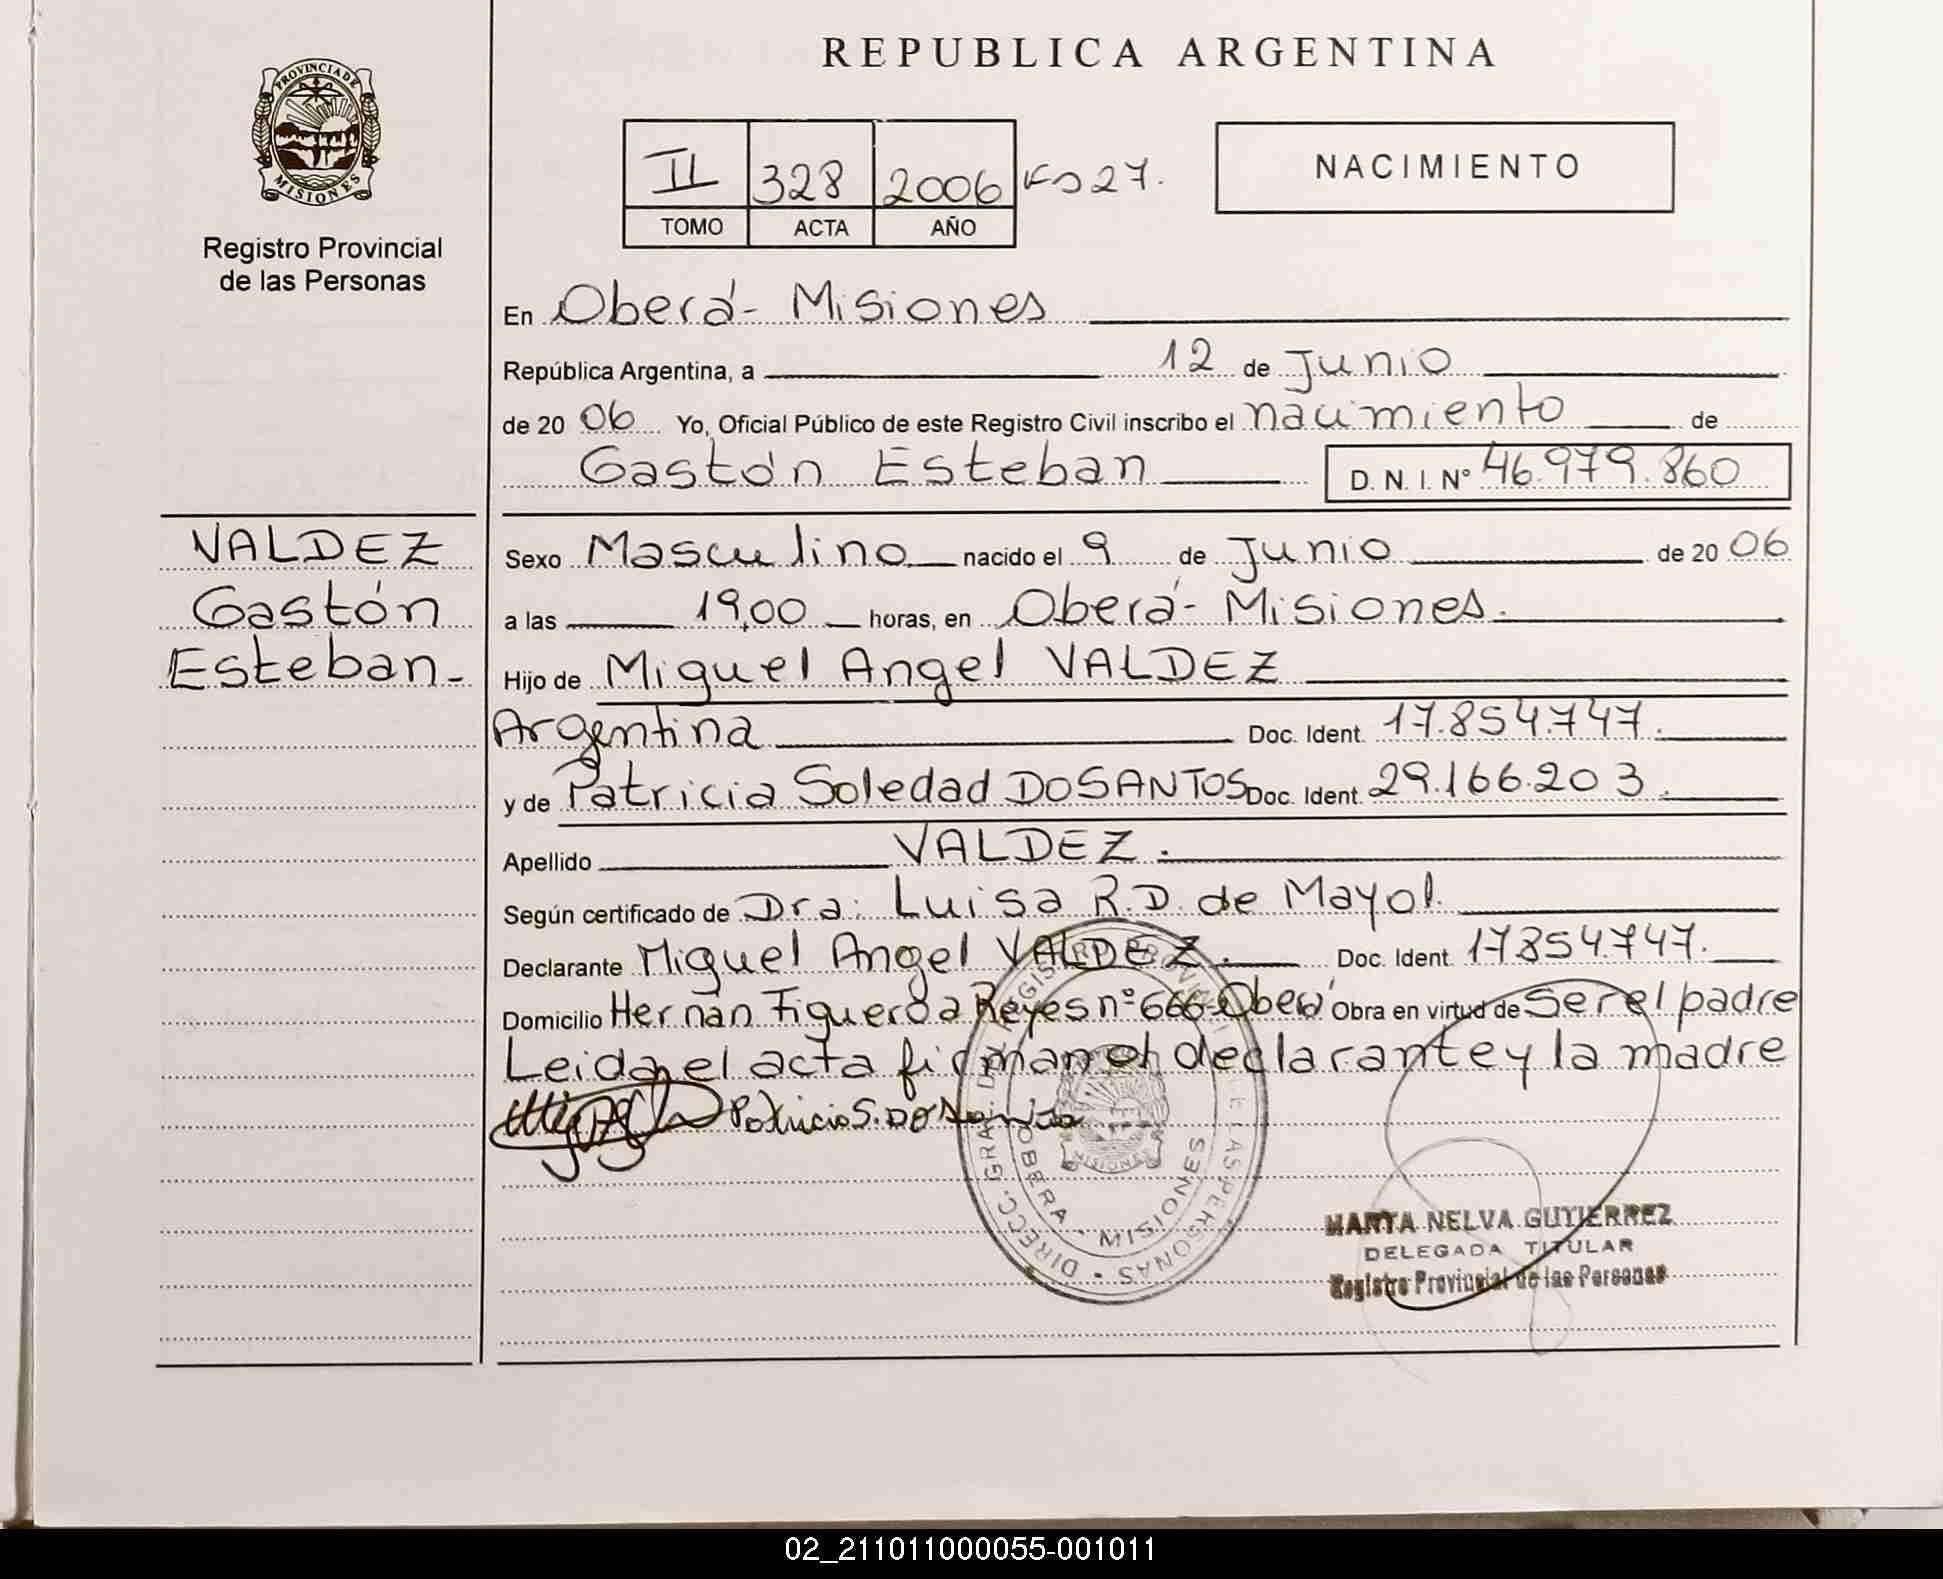 REPUBLICA ARGENTINA
PROVINCIA DE
MISIONES
Registro Provincial
de las Personas
II 328 2006 Fº 27.
TOMO ACTA AÑO
NACIMIENTO
En Oberá - Misiones
República Argentina, a 12 de Junio
de 2006 Yo, Oficial Público de este Registro Civil inscribo el nacimiento de
Gastón Esteban D. N. I. Nº 46.979.860
VALDEZ
Gastón
Esteban-
Sexo Masculino nacido el 9 de Junio de 2006
a las 19,00 horas, en Oberá - Misiones.
Hijo de Miguel Angel VALDEZ
Argentina Doc. Ident. 17.854.747.
y de Patricia Soledad DOSANTOS Doc. Ident. 29.166.203.
Apellido VALDEZ.
Según certificado de Dra: Luisa R.D. de Mayol.
Declarante Miguel Angel VALDEZ. Doc. Ident. 17854.747.
Domicilio Hernán Figueroa Reyes nº 666-Oberá Obra en virtud de Ser el padre
Leida el acta firman el declarante y la madre
Patricia S. DOSantos
DIRECC. GRAL. DEL REGISTRO PROVINCIAL DE LAS PERSONAS
OBERA - MISIONES
MISIONES
MARTA NELVA GUTIERREZ
DELEGADA TITULAR
Registro Provincial de las Personas
02_211011000055-001011